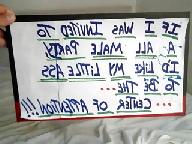 IF I WAS INVITED TO
A ALL MALE PARTY
I'D LIKE MY LITTLE ASS
TO BE THE...
...CENTER OF ATTENTION!!!